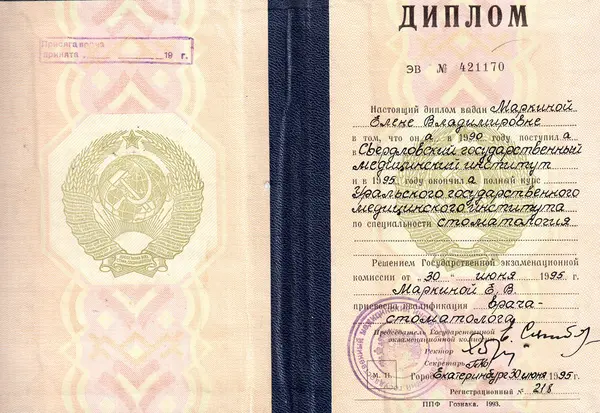 Присяга врача
принята 19 г.
ДИПЛОМ
ЭВ № 421170
Настоящий диплом выдан Маркиной
Елене Владимировне
в том, что она в 1990 году поступила
в Свердловский государственный
медицинский институт
и в 1995 году окончила полный курс
Уральского государственного
медицинского института
по специальности стоматология
Решением Государственной экзаменационной
комиссии от "30" июня 1995 г.
Маркиной Е. В.
присвоена квалификация врача-
стоматолога
Председатель Государственной
экзаменационной комиссии
Ректор
Секретарь
М. П. Город Екатеринбург 30 июня 1995 г.
Регистрационный № 218
ППФ Гознака. 1993.